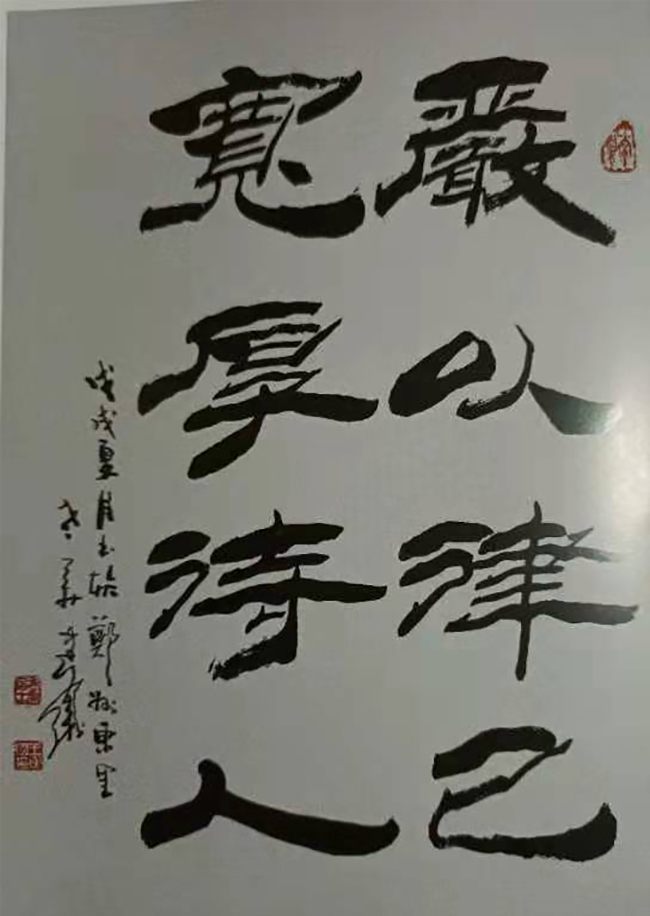 嚴以律己
寬厚待人
戊戌夏月書於鄭州東里